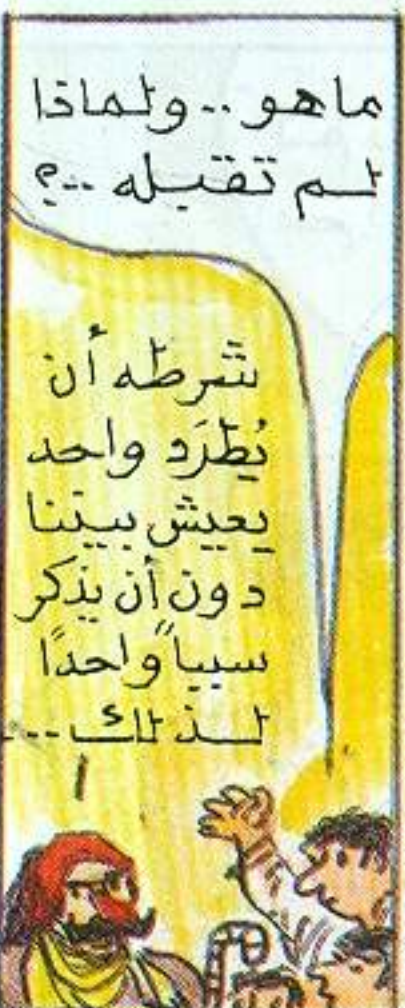 ماهو .. ولماذا
لم تقبله ..؟
شرطه أن
نُطرَد واحد
يعيش بيننا
دون أن يذكر
سبباً واحدًا
لذلك ...